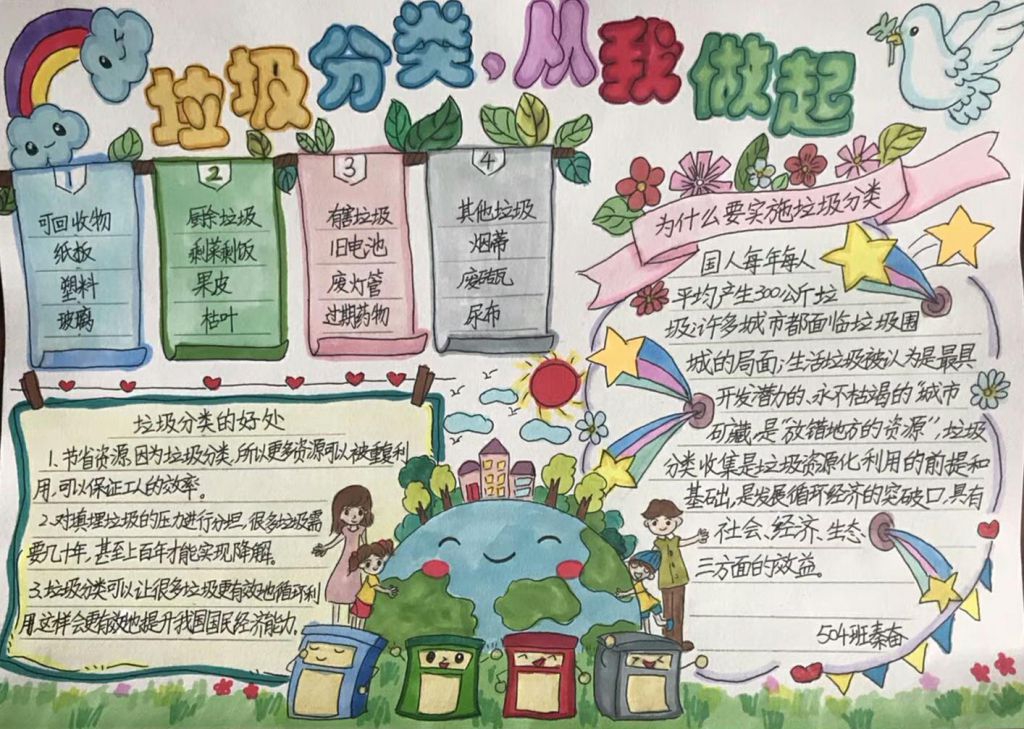 垃圾分类,从我做起
可回收物
纸板
塑料
玻璃
2
厨余垃圾
剩菜剩饭
果皮
枯叶
3
有害垃圾
旧电池
废灯管
过期药物
4
其他垃圾
烟蒂
废砖瓦
尿布
为什么要实施垃圾分类
国人每年每人
平均产生300公斤垃
圾;许多城市都面临垃圾围
城的局面;生活垃圾被认为是最具
开发潜力的、永不枯竭的“城市
矿藏,是“放错地方的资源”;垃圾
分类收集是垃圾资源化利用的前提和
基础出,是发展循环经济的突破口,具有
社会、经济、生态
三方面的效益。
504班秦奋
垃圾分类的好处
1.节省资源,因为垃圾分类,所以更多资源可以被重复利
用,可以保证工人的效率。
2.对填埋垃圾的压力进行分担,很多垃圾需
要几十年,甚至上百年才能实现降解。
3.垃圾分类可以让很多垃圾更有效地循环利
用,这样会更有效地提升我国国民经济能力。